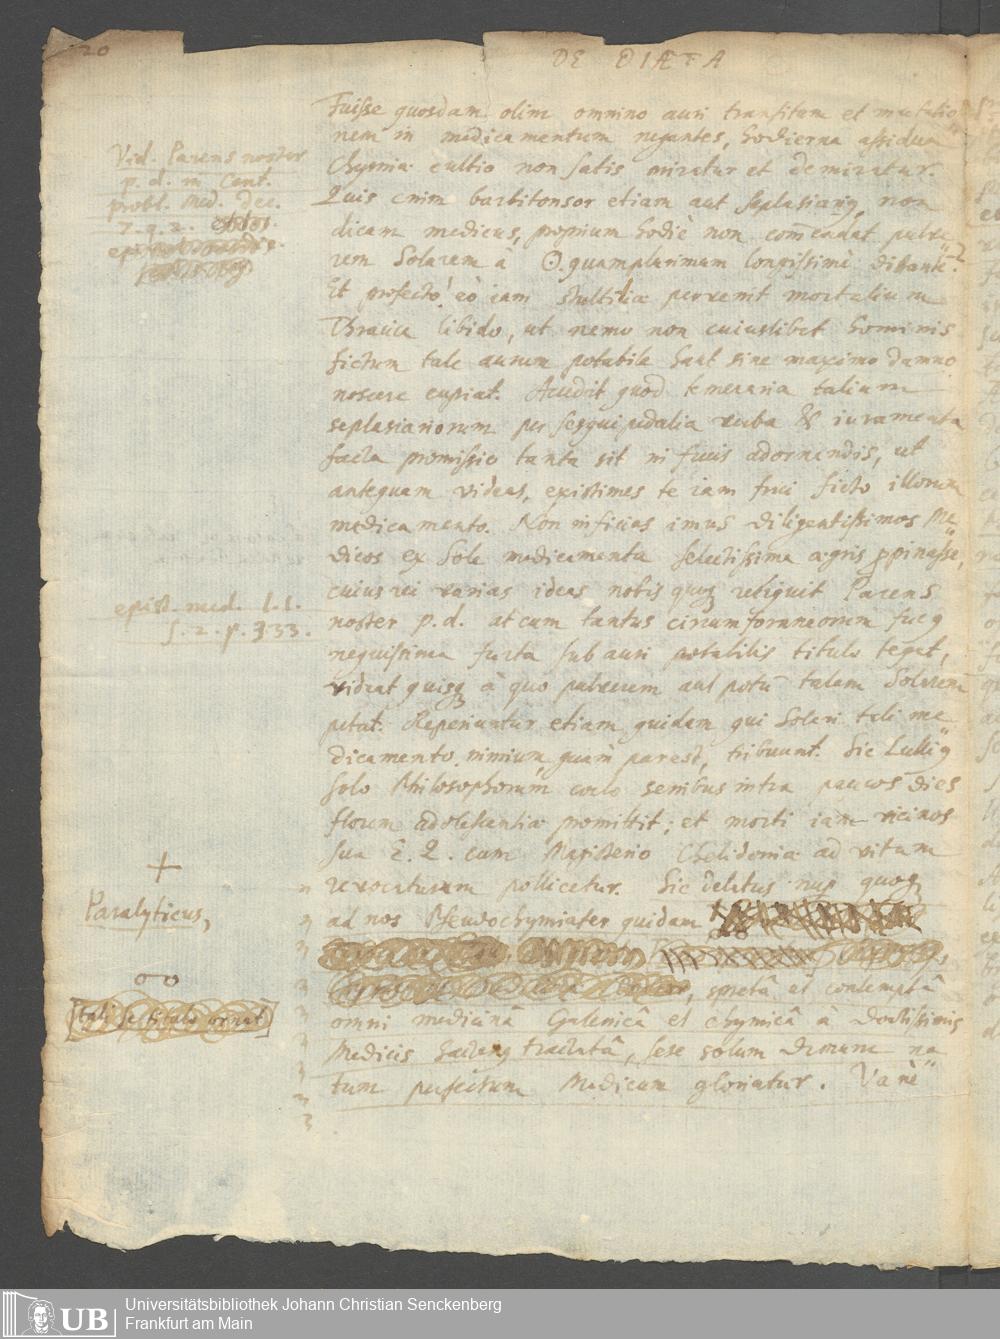 20
DE DIÆTA
Fuisse quosdam olim omnino auri transitum et mutatio
nem in medicamentum negantes, hodierna assidua
Chymiæ cultio non satis miratur et demiratur.
Quis enim barbitonsor etiam aut seplasiariꝰ, non
dicam medicus, proprium hodiè non com̄endat pulve
rem Solarem à ☉. quamplurimum longissimè distante?
Et profectò! eò iam stultitiæ pervenit mortalium
Thraica libido, ut nemo non cuiuslibet hominis
fictum tale aurum potabile haut sine maximo damno
noscere cupiat. Accedit quod temeraria talium
seplasiariorum per sesquipedalia verba & iuramenta
facta promissio tanta sit in fucis adornandis, ut
antequam videas, existimes te iam frui ficto illorum
medicamento. Non inficias imus diligentissimos Me
dicos ex Sole medicamenta selectissima ægris ꝓpinasse,
cuius rei varias ideas nobis quoqꝫ reliquit Parens
noster p. d. at cum tantus circumforaneorum fucꝰ
nequissima furta sub auri potabilis titulo tegat,
videat quisqꝫ à quo pulverem aut potū talem Solarem
petat. Reperiuntur etiam quidam qui Solari tali me
dicamento nimium, quàm par est, tribuunt. Sic Lulliꝰ
solo Philosophorum coelo senibus intra paucos dies
florem adolescentiæ promittit; et morti iam vicinos
sua E. 2. cum Magisterio Chelidoniæ ad vitam
revocaturum pollicetur. Sic delatus nup quoqꝫ
ad nos Pseudochymiater quidam
, spretâ et contemptâ
omni medicinâ Galenicâ et chymicâ à doctissimis
Medicis hactenꝰ tractatâ, sese solum demum na
tum perfectum Medicum gloriatur. Vanè
Vid. Parens noster
p. d. in Cent.
probl. med. dec.
7. q. 2.
epist. med. l. 1.
f. 2. p. 333.
Paralyticus,
tali se titulo ornat
Universitätsbibliothek Johann Christian Senckenberg
Frankfurt am Main
UB